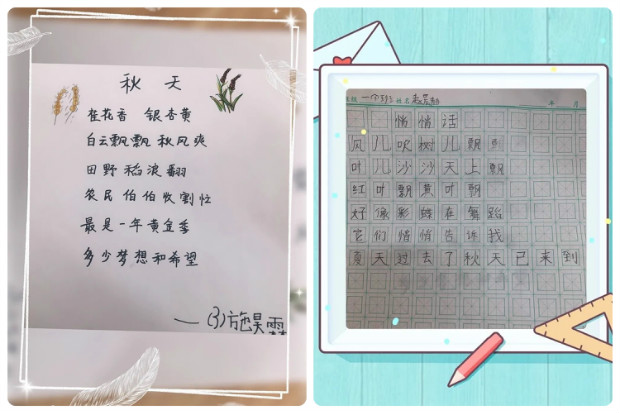 秋 天
桂花香 银杏黄
白云飘飘 秋风爽
田野稻浪翻
农民伯伯收割忙
最是一年黄金季
多少梦想和希望
一(3)施昊霖
一(3)
悄悄话
风儿吹树儿飘
叶儿沙沙天上飘
红叶飘黄叶飘
好像彩蝶在舞蹈
它们悄悄告诉我
夏天过去了秋天已来到